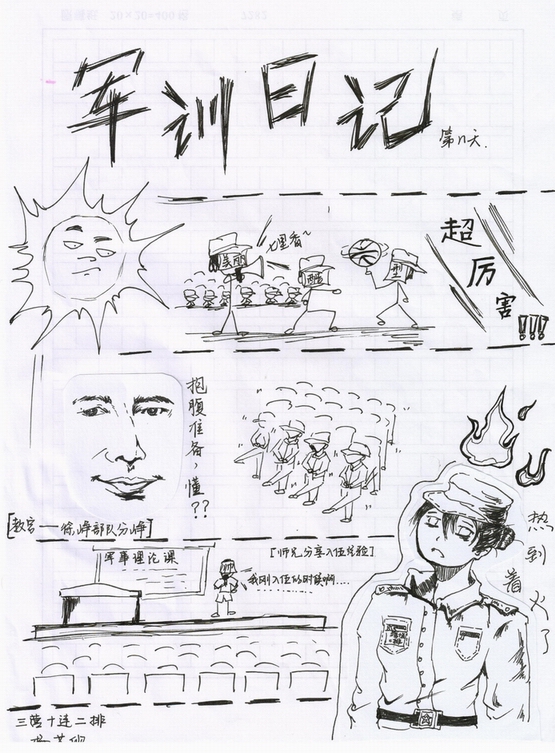 军训日记
第n天.
七里香~
超厉害!!!
抱腹准备，懂??
[教官——徐峥部队分峥]
热到着火了
军事理论课
[师兄分享入伍经验]
我刚入伍的时候啊……
三营十连二排